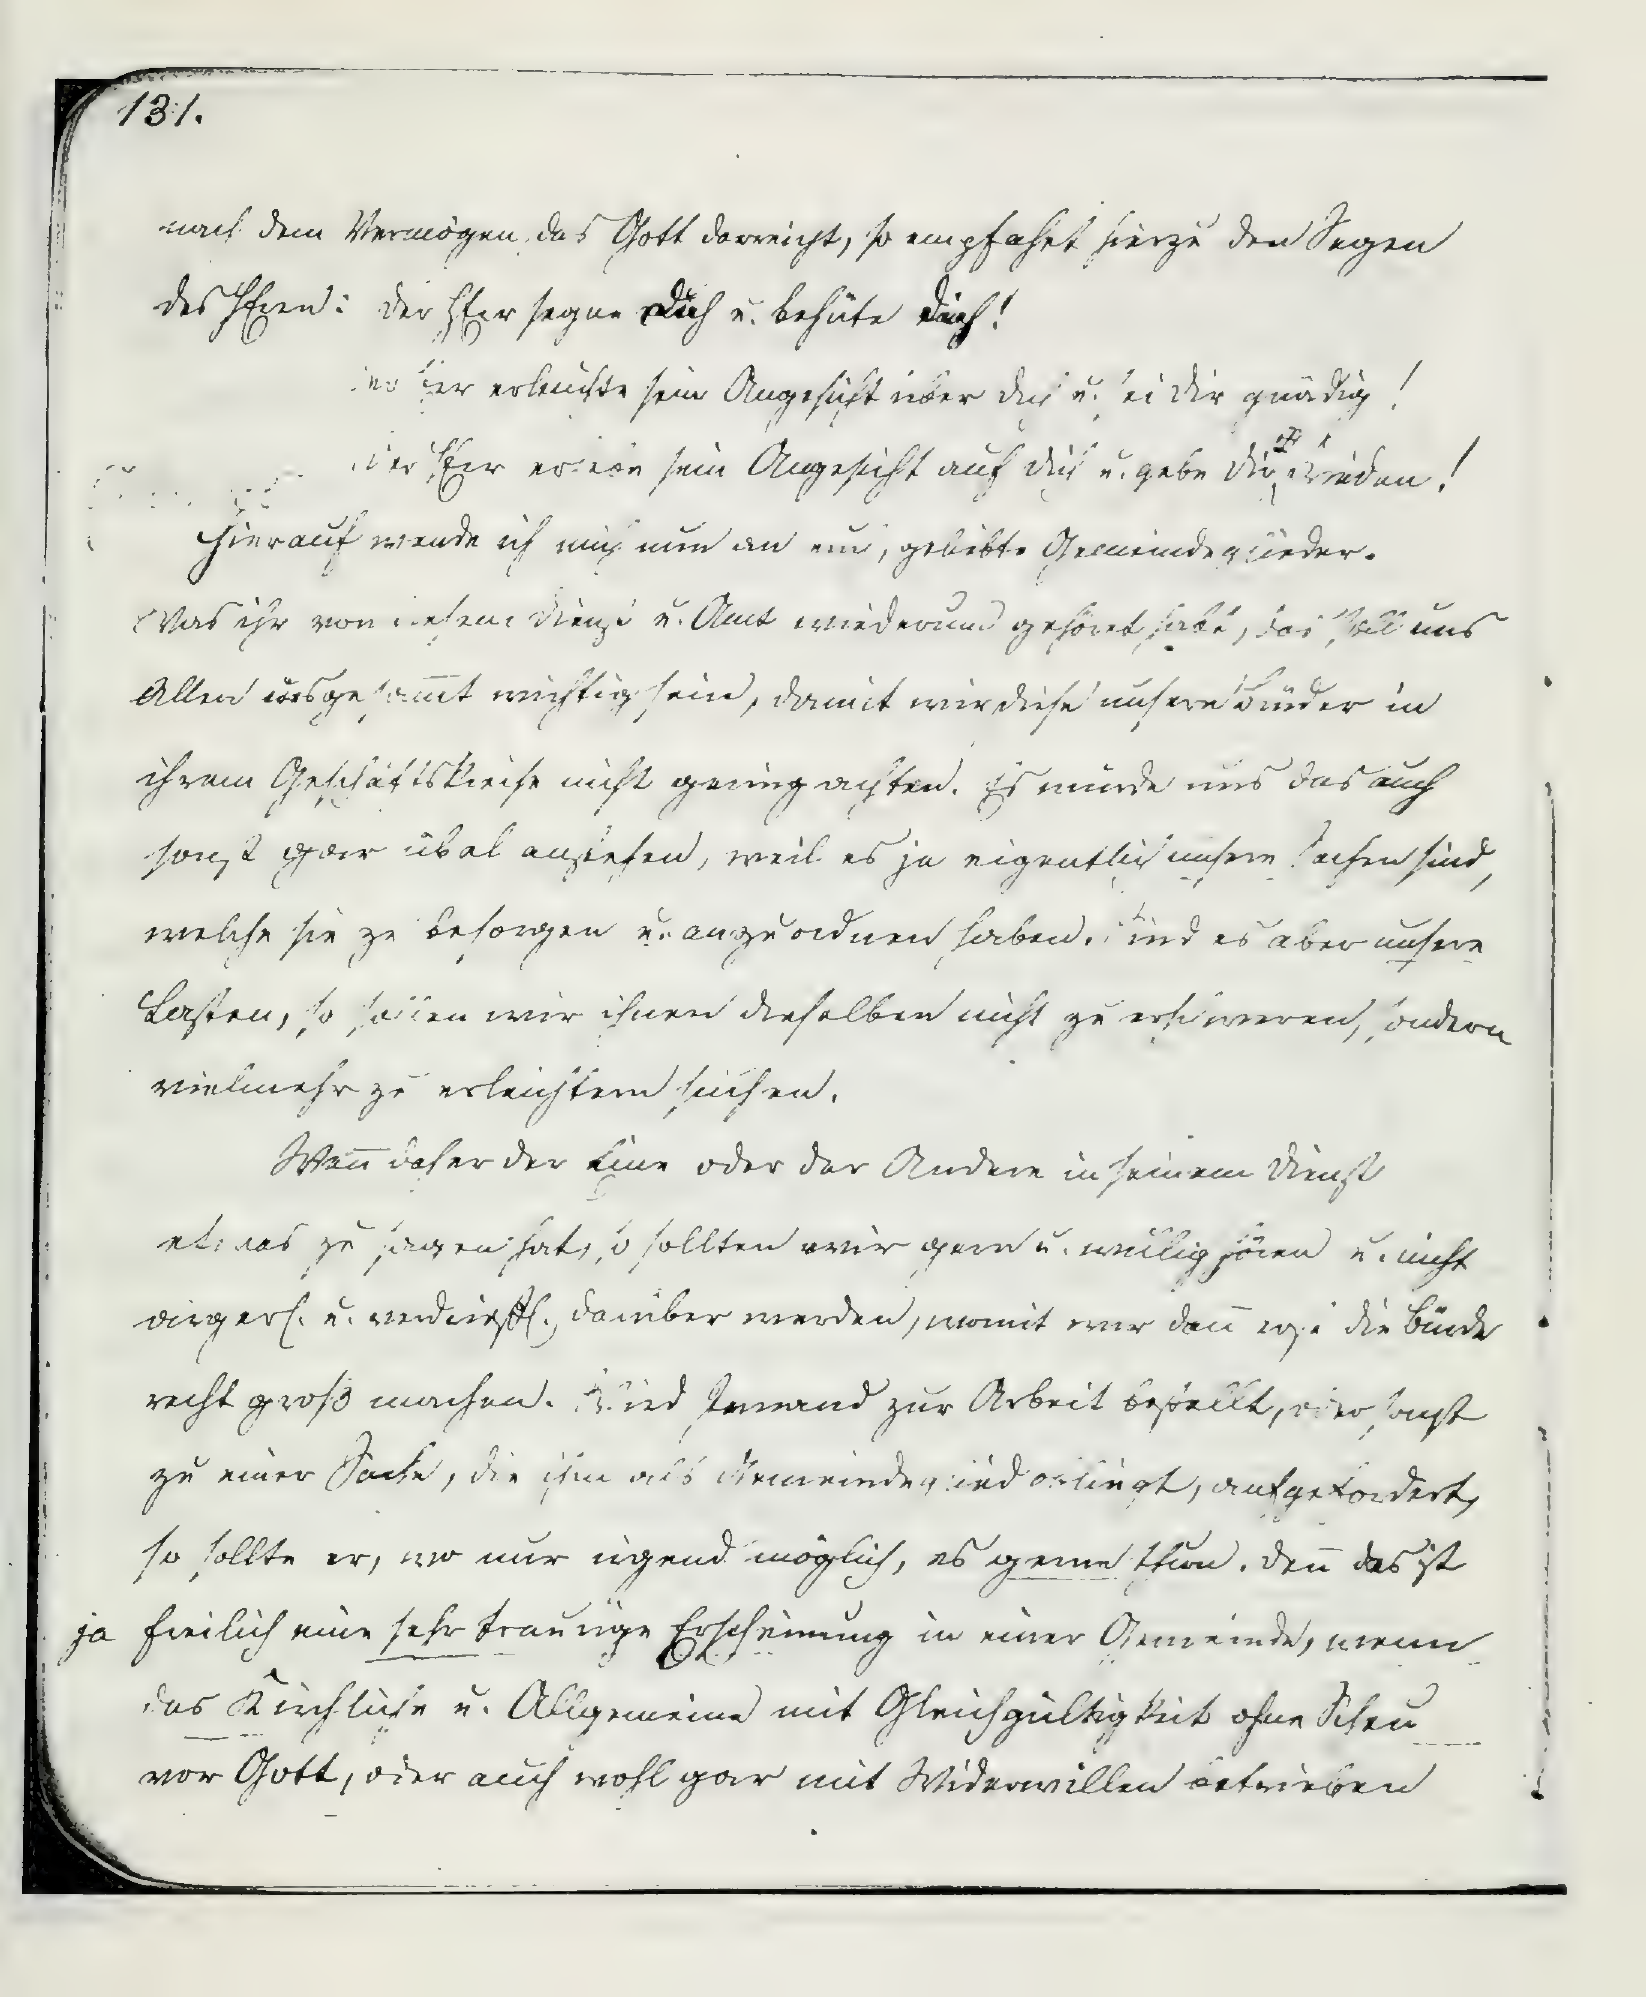 131.
nach dem Vermögen, das Gott darreicht, so empfahet hierzu den Segen
des HErrn: Der HErr segne Dich u. behüte Dich!
der HErr erleuchte sein Angesicht über dich u. sei dir gnädig!
der HErr erhebe sein Angesicht auf dich u. gebe dir Frieden!
Hierauf wende ich mich nun an euch, geliebte Gemeindeglieder.
Was ihr von diesem Dienst u. Amt wiederum gehöret habt, das soll uns
Allen insgesam̅t wichtig sein, damit wir diese unsere Brüder in
ihrem Geschäftskreise nicht gering achten. Es würde uns das auch
sonst gar übel anstehen, weil es ja eigentlich unsere Sachen sind,
welche sie zu besorgen u. anzuordnen haben. Sind es aber unsere
Lasten, so sollen wir ihnen dieselben nicht zu erschweren, sondern
vielmehr zu erleichtern suchen.
Wen̅ daher der Eine oder der Andere in seinem Dienst
etwas zu sagen hat, so sollten wir gern u. willig hören u. nicht
ärgerl. u. verdrießl. darüber werden, womit wir dan̅ erst die Bürde
recht groß machen. Wird Jemand zur Arbeit bestellt, oder sonst
zu einer Sache, die ihm als Gemeindeglied obliegt, aufgefordert,
so sollte er, wo nur irgend möglich, es gerne thun. Den̅ das ist
ja freilich eine sehr traurige Erscheinung in einer Gemeinde, wenn
das Kirchliche u. Allgemeine mit Gleichgültigkeit ohne Scheu
vor Gott, oder auch wohl gar mit Widerwillen betrieben